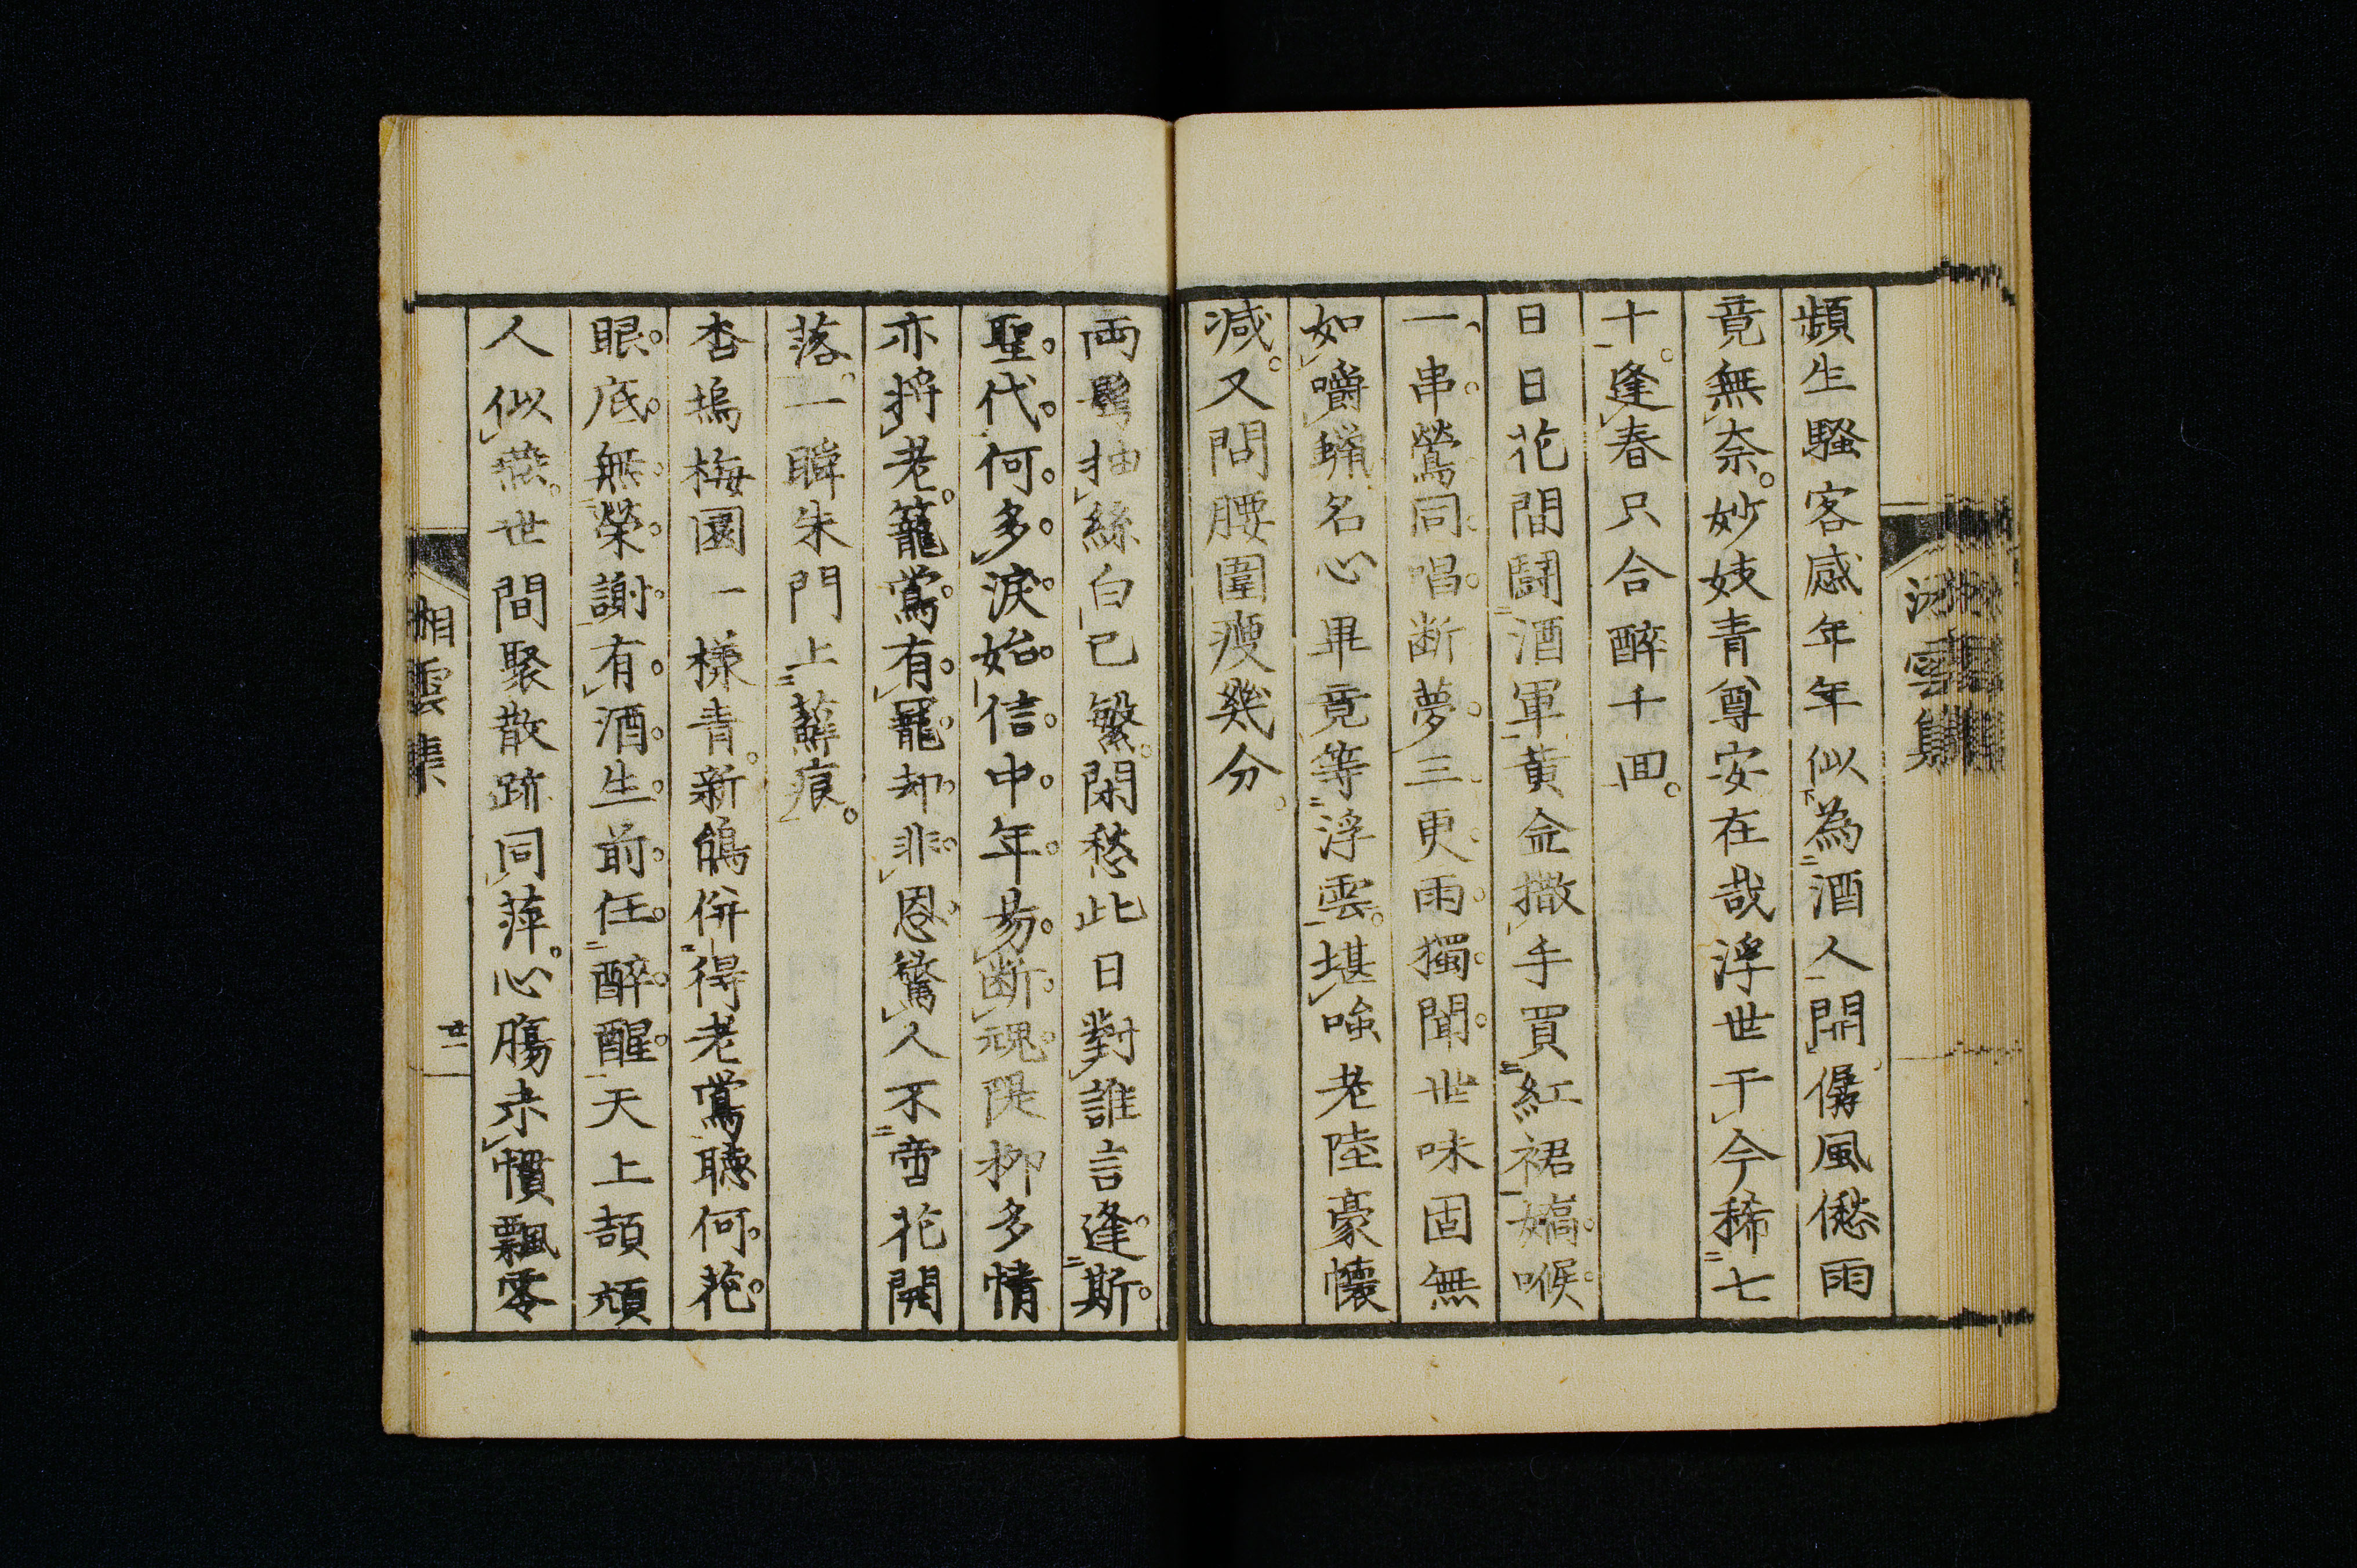 頻生騷客感年年似為酒人開僝風僽雨
竟無奈妙妓青尊安在哉浮世于今稀七
十逢春只合醉千回
日日花間鬪酒軍黃金撒手買紅裙嬌喉
一串鶯同唱断夢三更雨獨聞世味固無
如嚼蠟名心畢竟等浮雲堪嗤老陸豪懷
減又問腰圍瘦幾分
両鬢抽絲白已繁閑愁此日對誰言逢斯
聖代何多淚始信中年易断魂隄柳多情
亦將老籠鶯有寵却非恩驚人不啻花開
落一瞬朱門上蘚痕
杏塢梅園一樣青新鴿併得老鶯聽何花
眼底無榮謝有酒生前任醉醒天上頡頏
人似燕世間聚散跡同萍心膓未慣飄零
湘雲集
廿一